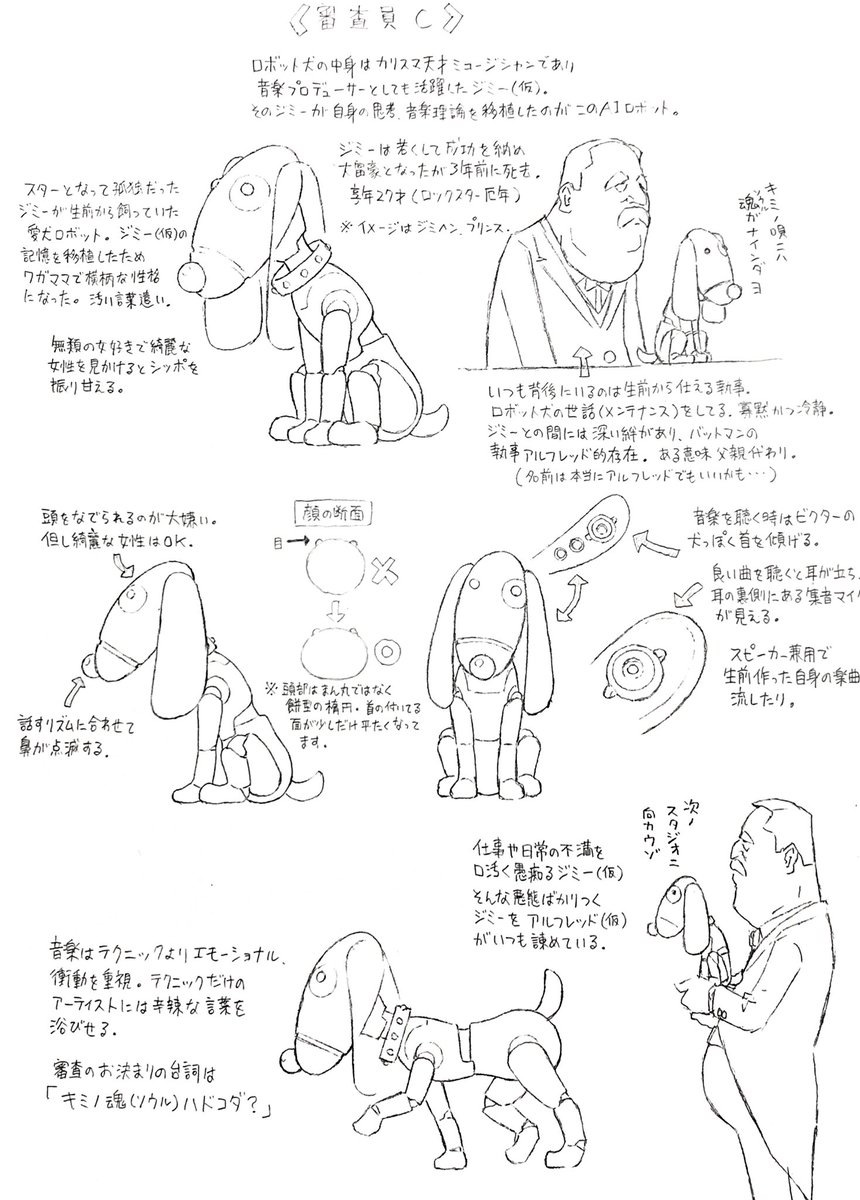 《審査員C》
ロボット犬の中身はカリスマ天才ミュージシャンであり
音楽プロデューサーとしても活躍したジミー(仮)。
そのジミーが自身の思考、音楽理論を移植したのがこのAIロボット。
ジミーは若くして成功を納め
大富豪となったが3年前に死去。
享年27才(ロックスター厄年)
※イメージはジミヘン、プリンス。
スターとなって孤独だった
ジミーが生前から飼っていた
愛犬ロボット。ジミー(仮)の
記憶を移植したため
ワガママで横柄な性格
になった。汚い言葉遣い。
無類の女好きで綺麗な
女性を見かけるとシッポを
振り甘える。
キミノ唄ニハ
魂ガナインダヨ
ソウル
いつも背後にいるのは生前から仕える執事。
ロボット犬の世話(メンテナンス)をしてる。寡黙かつ冷静。
ジミーとの間には深い絆があり、バットマンの
執事アルフレッド的存在。ある意味父親代わり。
(名前は本当にアルフレッドでもいいかも・・・)
頭をなでられるのが大嫌い。
但し綺麗な女性はOK.
顔の断面
目
※頭部はまん丸ではなく
餅型の楕円。首の付いてる
面が少しだけ平たくなって
ます。
音楽を聴く時はビクターの
犬っぽく首を傾げる。
良い曲を聴くと耳が立ち、
耳の裏側にある集音マイク
が見える。
スピーカー兼用で
生前作った自身の楽曲
流したり。
話すリズムに合わせて
鼻が点滅する。
次ノ
スタジオニ
向カウゾ
仕事や日常の不満を
口汚く愚痴るジミー(仮)
そんな悪態ばかりつく
ジミーをアルフレッド(仮)
がいつも諌めている。
音楽はテクニックよりエモーショナル、
衝動を重視。テクニックだけの
アーティストには辛辣な言葉を
浴びせる。
審査のお決まりの台詞は
「キミノ魂(ソウル)ハドコダ?」